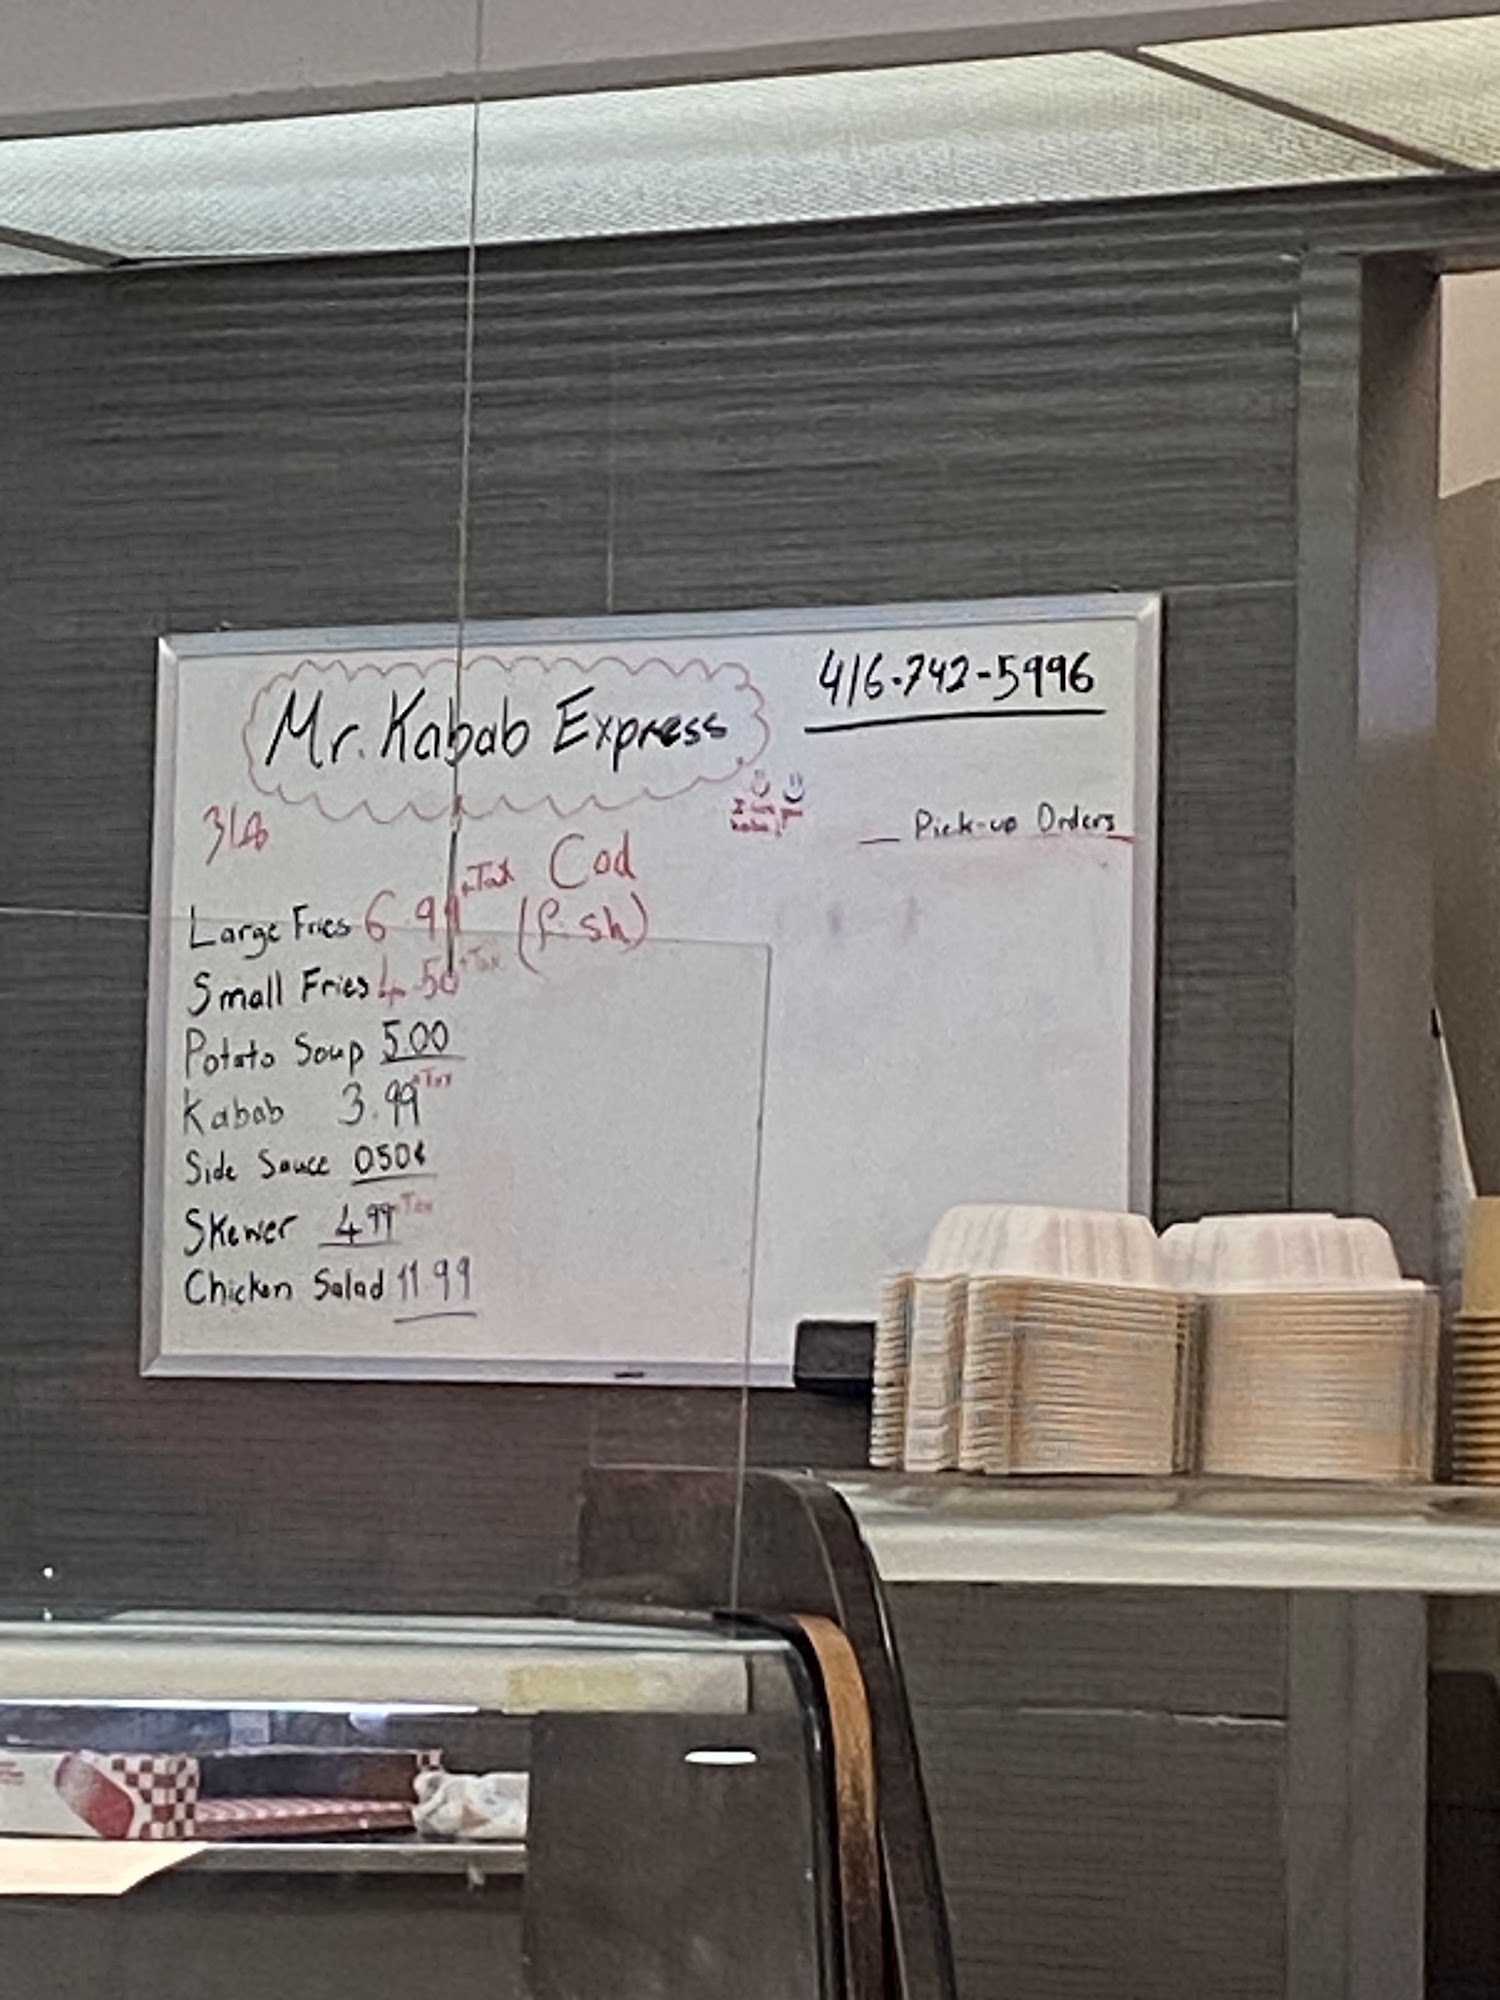 Mr. Kabab Express
416-742-5996
Pick-up Orders
Cod
(fish)
Large Fries 6.99 +Tax
Small Fries 4.50 +Tax
Potato Soup 5.00
Kabab 3.99 +Tax
Side Sauce 050¢
Skewer 4.99 +Tax
Chicken Salad 11.99